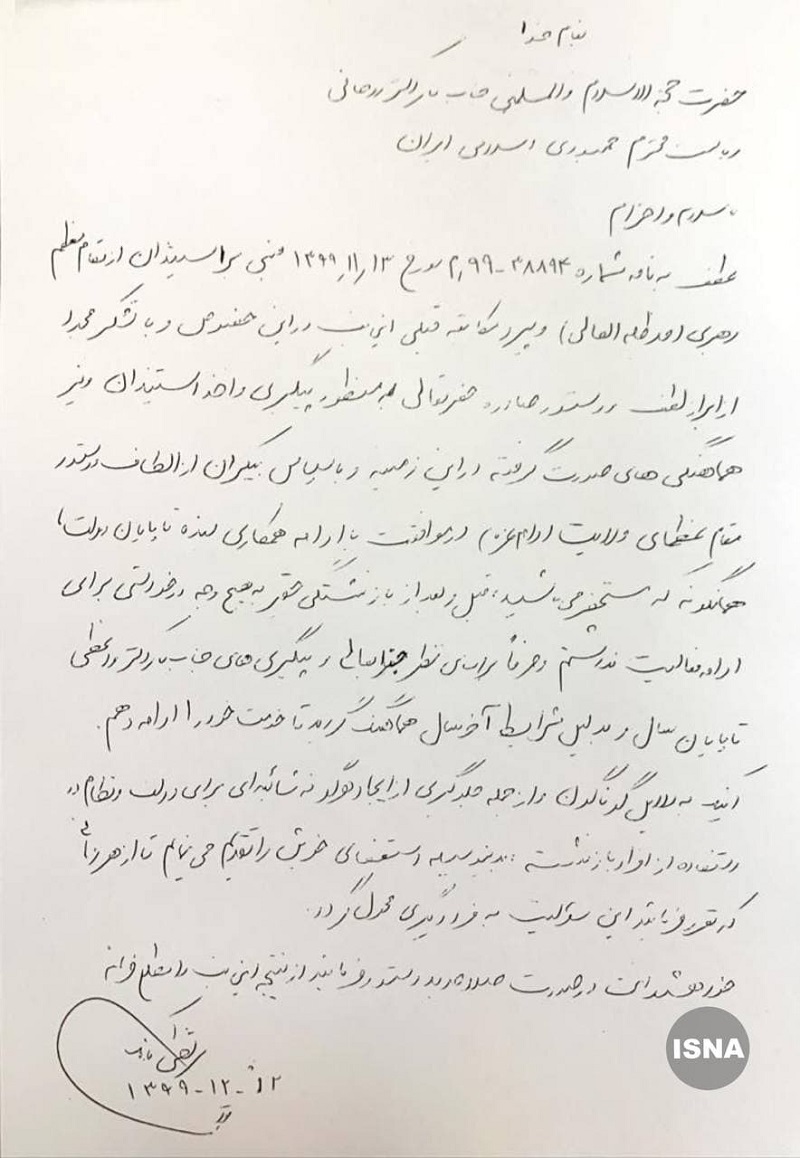 بنام خدا
حضرت حجة الاسلام والمسلمین جناب آقای دکتر روحانی
ریاست محترم جمهوری اسلامی ایران
با سلام و احترام
عطف به نامه شماره ۳۸۸۹۴-۹۹/م مورخ ۱۳۹۹/۱۱/۱۳ مبنی بر استیذان از مقام معظم
رهبری (مد ظله العالی) و پیرو مکاتبه قبلی این‌جانب در این خصوص و با تشکر مجدد
از ابراز لطف و دستور صادره حضرتعالی به منظور پیگیری و اخذ استیذان و نیز
هماهنگی های صورت گرفته در این زمینه و با سپاس بیکران از الطاف و دستور
مقام عظمای ولایت (دام عزه) در موافقت با ادامه همکاری بنده تا پایان دولت،
همانگونه که مستحضر می باشید، قبل و بعد از بازنشستگی حقیر به هیچ وجه درخواستی برای
ادامه فعالیت نداشتم و صرفاً بر اساس نظر جنابعالی و پیگیری های جناب آقای دکتر واعظی
تا پایان سال و بدلیل شرایط آخر سال هماهنگ گردید تا خدمت خود را ادامه دهم.
اینک به دلایل گوناگون و از جمله جلوگیری از ایجاد هرگونه شائبه‌ای برای دولت و نظام در
استفاده از افراد بازنشسته، بدینوسیله استعفای خویش را تقدیم می نمایم تا از هر زمانی
که تقریر فرمائید این مسئولیت به فرد دیگری محول گردد.
خواهشمند است در صورت صلاحدید دستور فرمائید از نتیجه این‌جانب را مطلع فرمایند
۱۳۹۹-۱۲-۱۲
ISNA